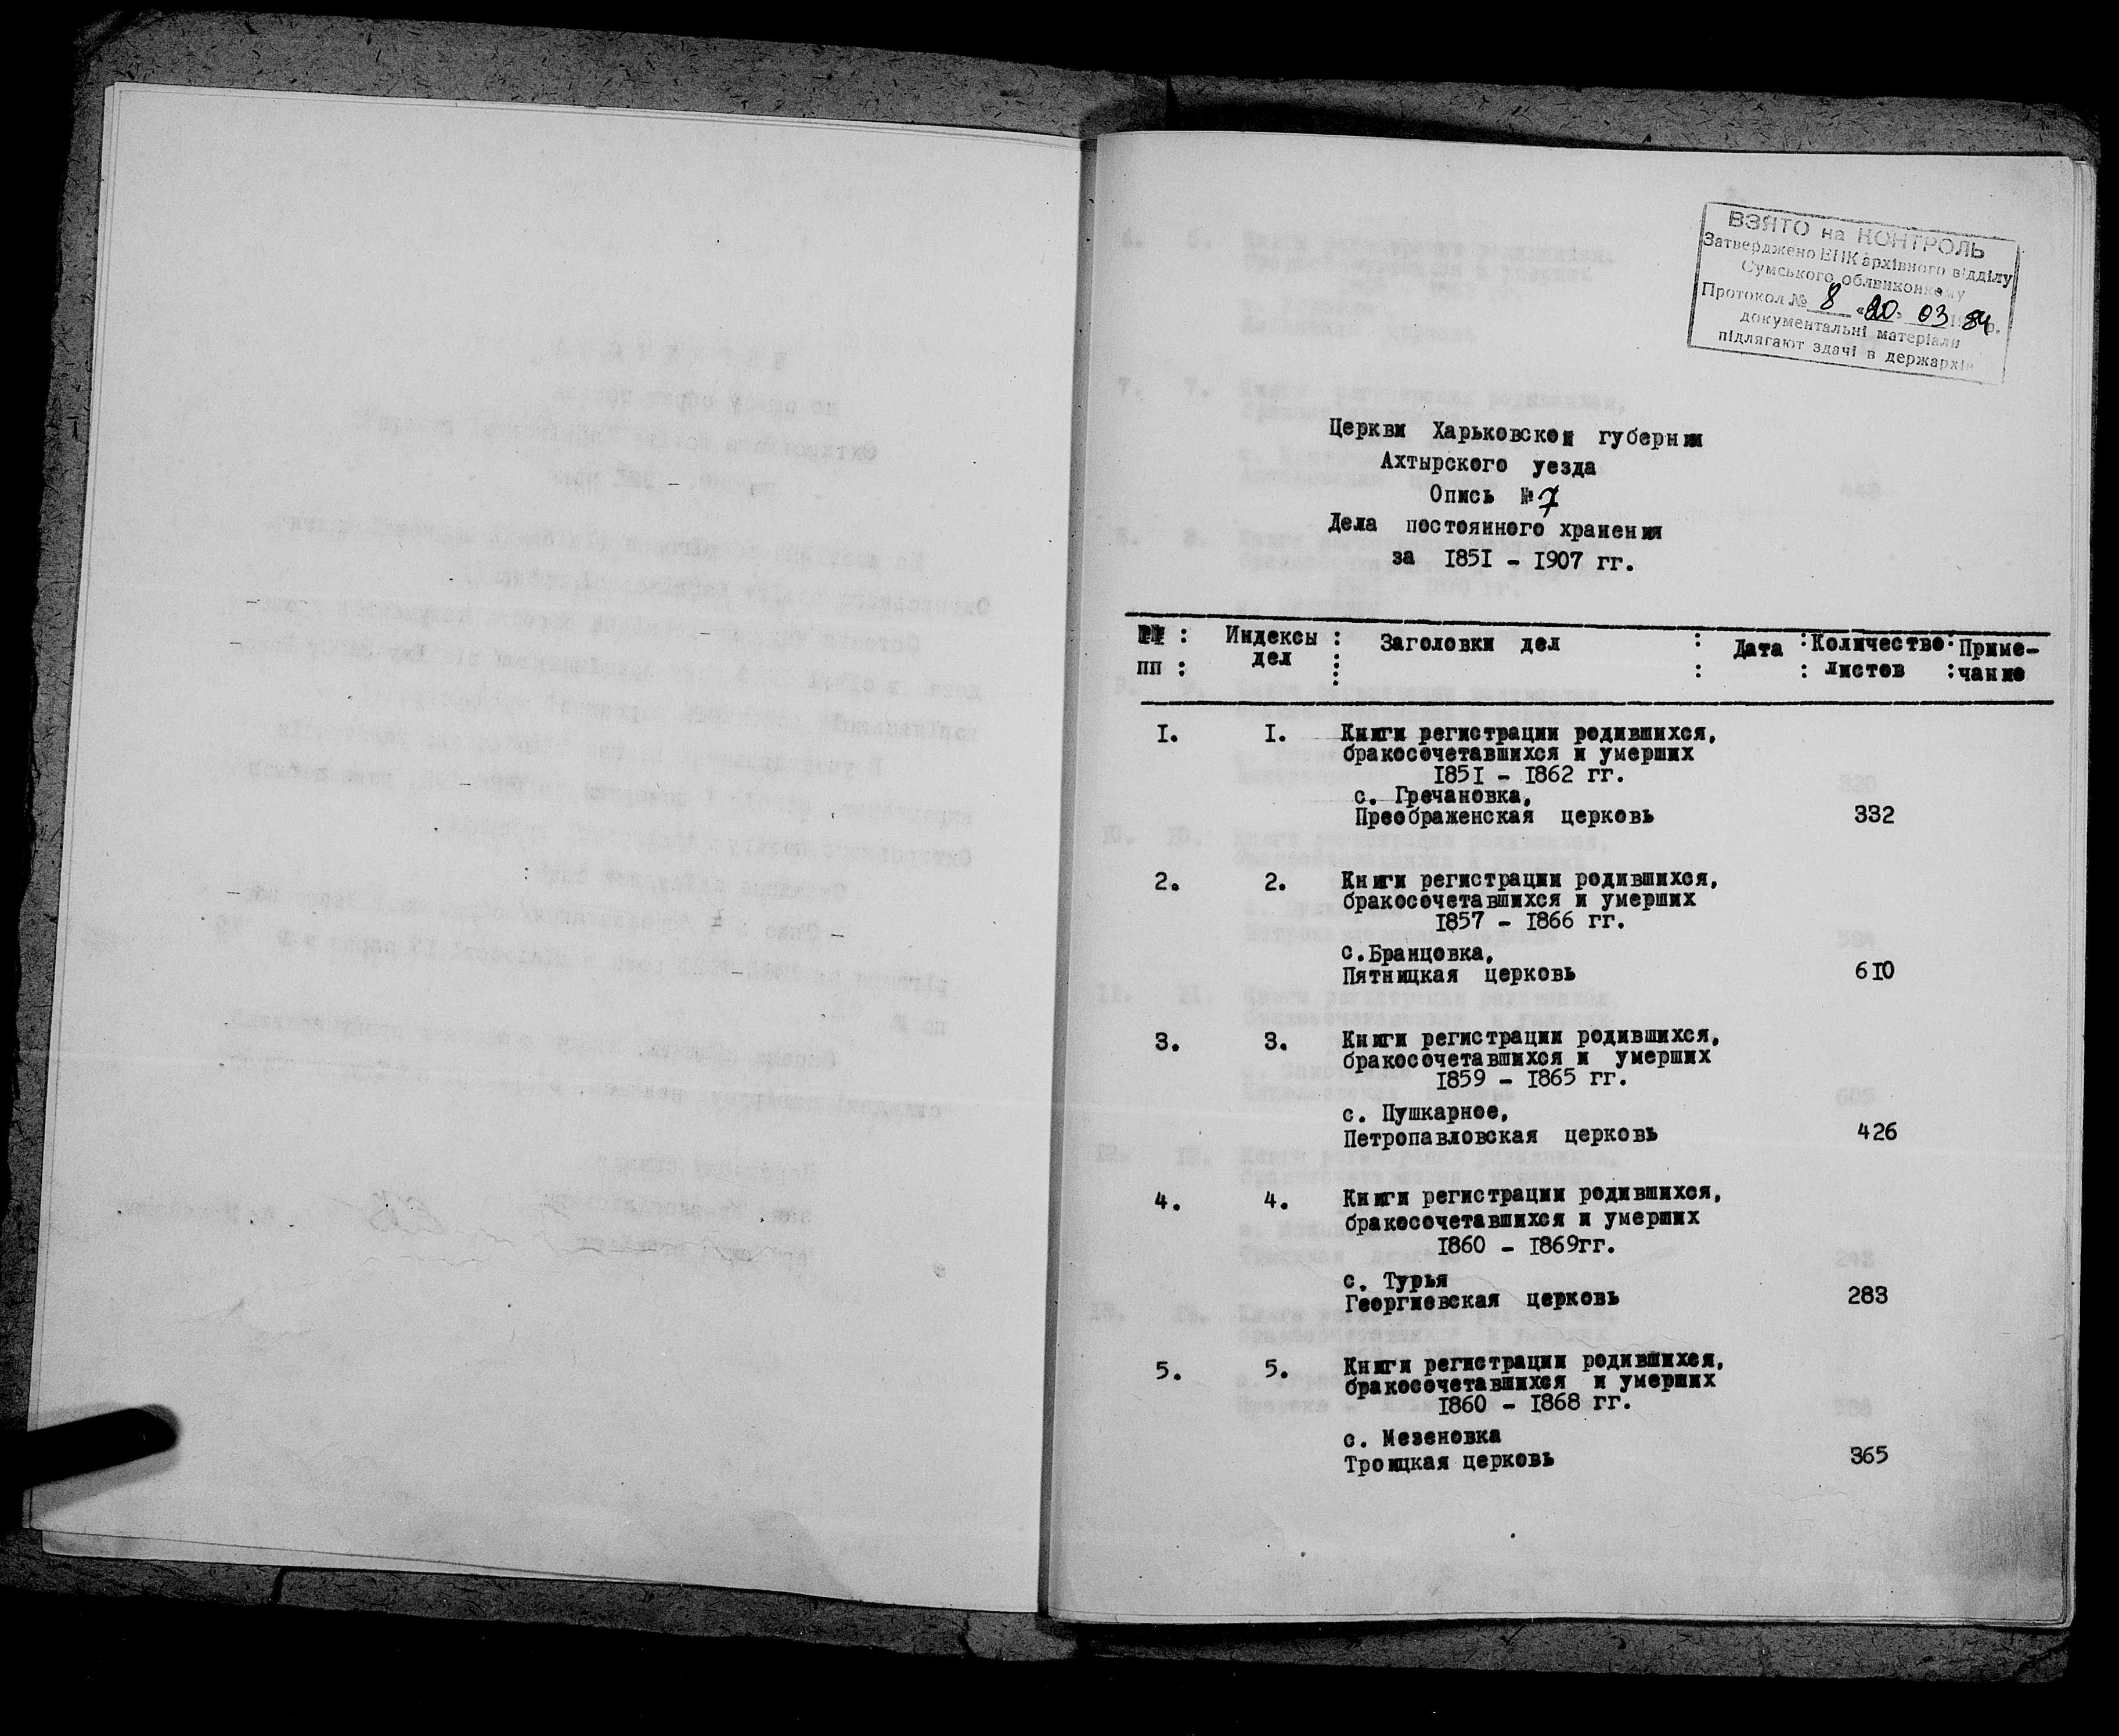 ВЗЯТО на КОНТРОЛЬ
Затверджено ЕПК архівного відділу
Сумського облвиконкому
Протокол № 8 "20" 03 1984 р.
документальні матеріали
підлягают здачі в держархів
Церкви Харьковской губернии
Ахтырского уезда
Опись № 7
Дела постоянного хранения
за 1851 - 1907 гг.
№№ : Индексы : Заголовки дел : Дата : Количество : Приме-
пп : дел : : : листов : чание
1. 1. Книги регистрации родившихся,
бракосочетавшихся и умерших
1851 - 1862 гг.
с. Гречановка,
Преображенская церковь 332
2. 2. Книги регистрации родившихся,
бракосочетавшихся и умерших
1857 - 1866 гг.
с.Бранцовка,
Пятницкая церковь 610
3. 3. Книги регистрации родившихся,
бракосочетавшихся и умерших
1859 - 1865 гг.
с. Пушкарное,
Петропавловская церковь 426
4. 4. Книги регистрации родившихся,
бракосочетавшихся и умерших
1860 - 1869гг.
с. Турья
Георгиевская церковь 283
5. 5. Книги регистрации родившихся,
бракосочетавшихся и умерших
1860 - 1868 гг.
с. Мезеновка
Троицкая церковь 365